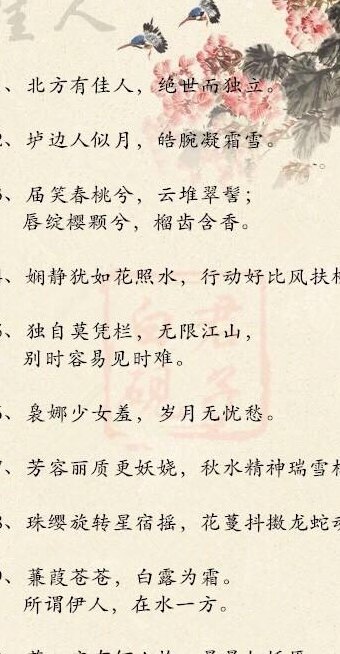 佳人
、北方有佳人，绝世而独立。
、垆边人似月，皓腕凝霜雪。
、届笑春桃兮，云堆翠髻；
唇绽樱颗兮，榴齿含香。
、娴静犹如花照水，行动好比风扶
、独自莫凭栏，无限江山，
别时容易见时难。
、袅娜少女羞，岁月无忧愁。
、芳容丽质更妖娆，秋水精神瑞雪
、珠缨旋转星宿摇，花蔓抖擞龙蛇
、蒹葭苍苍，白露为霜。
所谓伊人，在水一方。